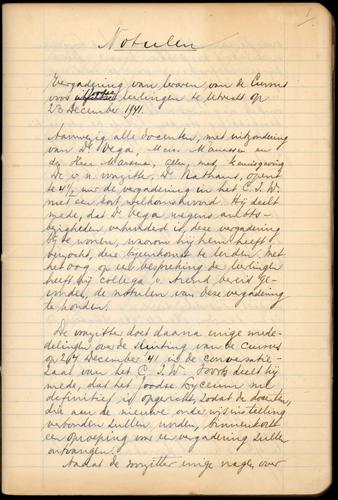 1
Notulen
Vergadering van leraren van de Cursus
voor Joodse leerlingen te Utrecht op
23 December 1941.
Aanwezig alle docenten, met uitzondering
van Dr Vega, Mevr. Manassen en
den Heer Marsma, allen, met kennisgeving
De w.n. voorzitter, Dr. Kathaus, opent
te 4½ uur de vergadering in het C.I.W.
met een kort welkomstwoord. Hij deelt
mede, dat Dr Vega wegens ambts-
bezigheden verhinderd is, deze vergadering
bij te wonen, waarom hij hem heeft
verzocht, deze bijeenkomst te leiden. Met
het oog op een bespreking de leerlingen
heeft hij collega v. Arend bereid ge-
vonden, de notulen van deze vergadering
te houden.
De voorzitter doet daarna enige mede-
delingen over de sluiting van de cursus
op 24 December '41 in de conversatie-
zaal van het C.I.W. Voorts deelt hij
mede, dat het Joodse Lyceum nu
definitief is opgericht, zodat de docenten,
die aan de nieuwe onderwijsinstelling
verbonden zullen worden, binnenkort
een oproeping voor een vergadering zullen
ontvangen.
Nadat de voorzitter enige vragen over